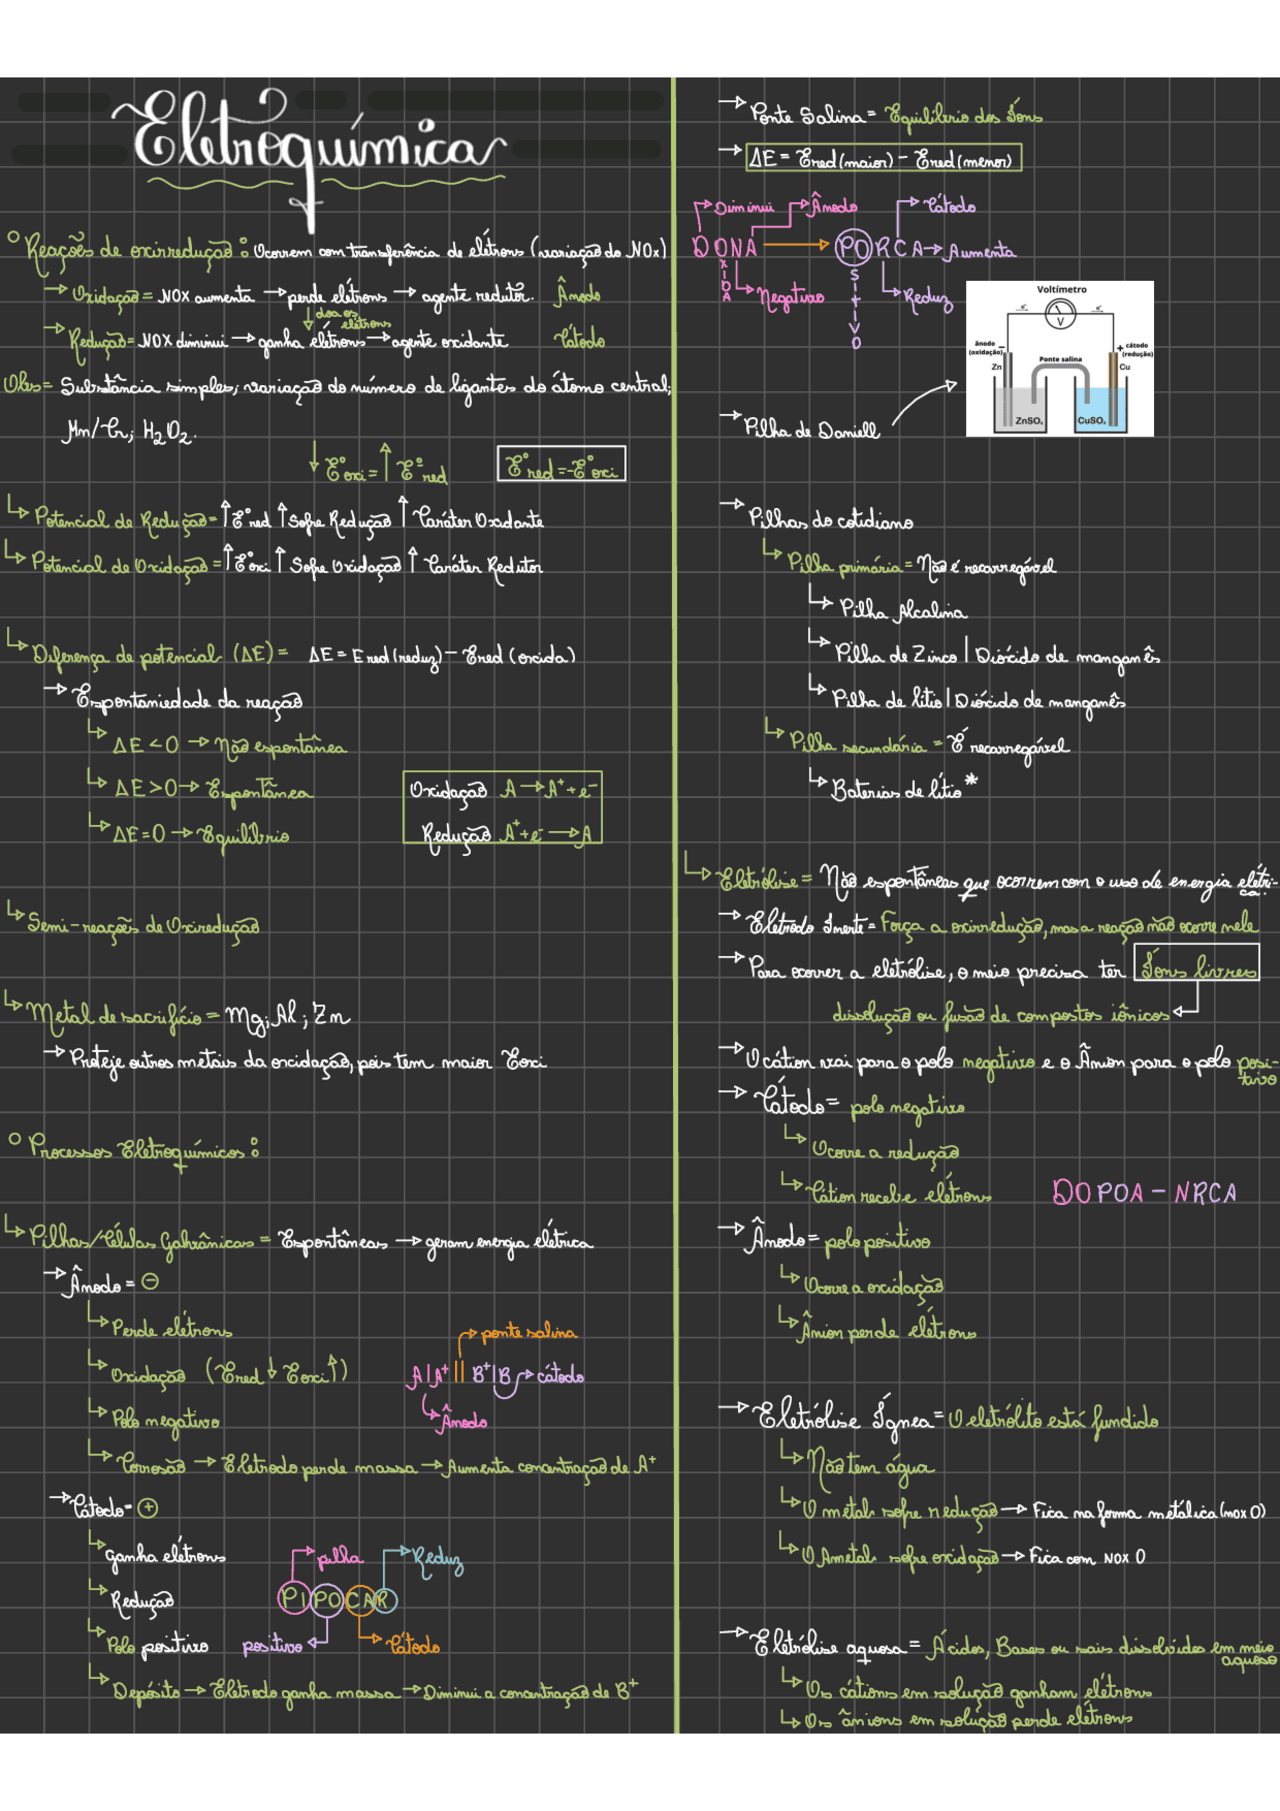 Eletroquímica
Reações de oxirredução: Ocorrem com transferência de elétrons (variação do NOx)
Oxidação = NOX aumenta → perde elétrons → agente redutor. Ânodo
↓ doa os elétrons
Redução = NOX diminui → ganha elétrons → agente oxidante Cátodo
Obs = Substância simples; variação do número de ligantes do átomo central;
Mn/Cr; H₂O₂.
↓ E°oxi = ↑ E°red
E°red = -E°oxi
Potencial de Redução = ↑E°red ↑Sofre Redução ↑ Caráter Oxidante
Potencial de Oxidação = ↑E°oxi ↑ Sofre Oxidação ↑ Caráter Redutor
Diferença de potencial (ΔE) = ΔE = Ered (reduz) - Ered (oxida)
→ Espontaniedade da reação
ΔE < 0 → Não espontânea
ΔE > 0 → Espontânea
ΔE = 0 → Equilíbrio
Oxidação A → A⁺ + e⁻
Redução A⁺ + e⁻ → A
Semi-reações de Oxiredução
Metal de sacrifício = Mg; Al; Zn
→ Proteje outros metais da oxidação, pois tem maior Eoxi
Processos Eletroquímicos:
Pilhas/Células Galvânicas = Espontâneas → geram energia elétrica
→ Ânodo = ⊖
Perde elétrons
Oxidação (Ered ↓ Eoxi ↑)
Polo negativo
Corrosão → Eletrodo perde massa → Aumenta concentração de A⁺
→ ponte salina
A|A⁺ || B⁺|B → cátodo
Ânodo
→ Cátodo = ⊕
ganha elétrons
Redução
Polo positivo
Depósito → Eletrodo ganha massa → Diminui a concentração de B⁺
pilha
Reduz
PIPOCAR
positivo
Cátodo
→ Ponte Salina = Equilíbrio dos Íons
→ ΔE = Ered (maior) - Ered (menor)
Diminui
Ânodo
Cátodo
DONA → PORCA → Aumenta
XIDA
Negativo
SITIVO
Reduz
→ Pilha de Daniell
Voltímetro
e⁻
V
e⁻
ânodo
(oxidação)
−
+
cátodo
(redução)
Zn
Ponte salina
Cu
ZnSO₄
CuSO₄
→ Pilhas do cotidiano
Pilha primária = Não é recarregável
Pilha Alcalina
Pilha de Zinco | Dióxido de manganês
Pilha de lítio | Dióxido de manganês
Pilha secundária = É recarregável
Baterias de lítio *
Eletrólise = Não espontâneas que ocorrem com o uso de energia elétrica.
→ Eletrodo Inerte = Força a oxirredução, mas a reação não ocorre nele
→ Para ocorrer a eletrólise, o meio precisa ter Íons livres
dissolução ou fusão de compostos iônicos
→ O cátion vai para o polo negativo e o Ânion para o polo positivo
→ Cátodo = polo negativo
Ocorre a redução
Cátion recebe elétrons
DOPOA - NRCA
→ Ânodo = polo positivo
Ocorre a oxidação
Ânion perde elétrons
→ Eletrólise Ígnea = O eletrólito está fundido
Não tem água
O metal sofre redução → Fica na forma metálica (nox 0)
O Ametal sofre oxidação → Fica com NOX 0
→ Eletrólise aquosa = Ácidos, Bases ou sais dissolvidos em meio aquoso
Os cátions em solução ganham elétrons
Os ânions em solução perde elétrons